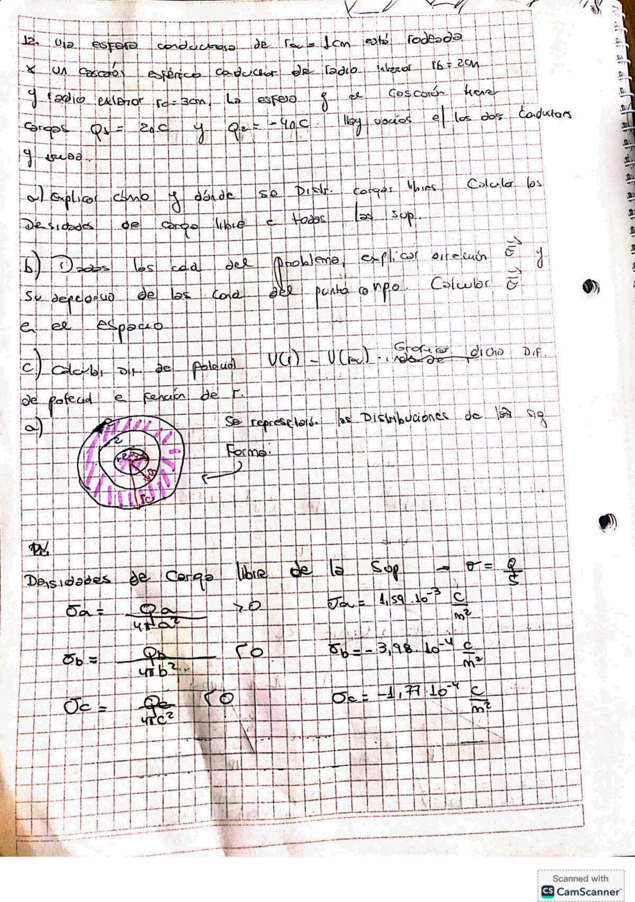 12. Una esfera conductora de ra = 1cm está rodeada
x un cascarón esférico conductor de radio interior rb = 2cm
y radio exterior rc = 3cm. La esfera y el cascarón tiene
cargas Q1 = 2nC y Q2 = -4nC. Hay vacíos e/ los dos conductors
y
a) Explicar cómo y dónde se Distr. cargas libres. Calcular las
Densidades de carga libre e todas las sup.
b) Dadas las cod del problema, explicar dirección E y
su dependencia de las coord del punto campo. Calcular E
en el espacio
c) Calcular Dif. de potencial V(r) - V(ra). Graficar dicha Dif.
de potecial e función de r.
a) Se represetará. las Distribuciones de la sig
Forma.
Densidades de Carga libre de la Sup → σ = Q/S
σa = Qa/4πa² >0 σa = 1,59.10⁻³ C/m²
σb = Qb/4πb² <0 σb = -3,98.10⁻⁴ C/m²
σc = Qc/4πc² <0 σc = -1,77.10⁻⁴ C/m²
Scanned with
CS CamScanner